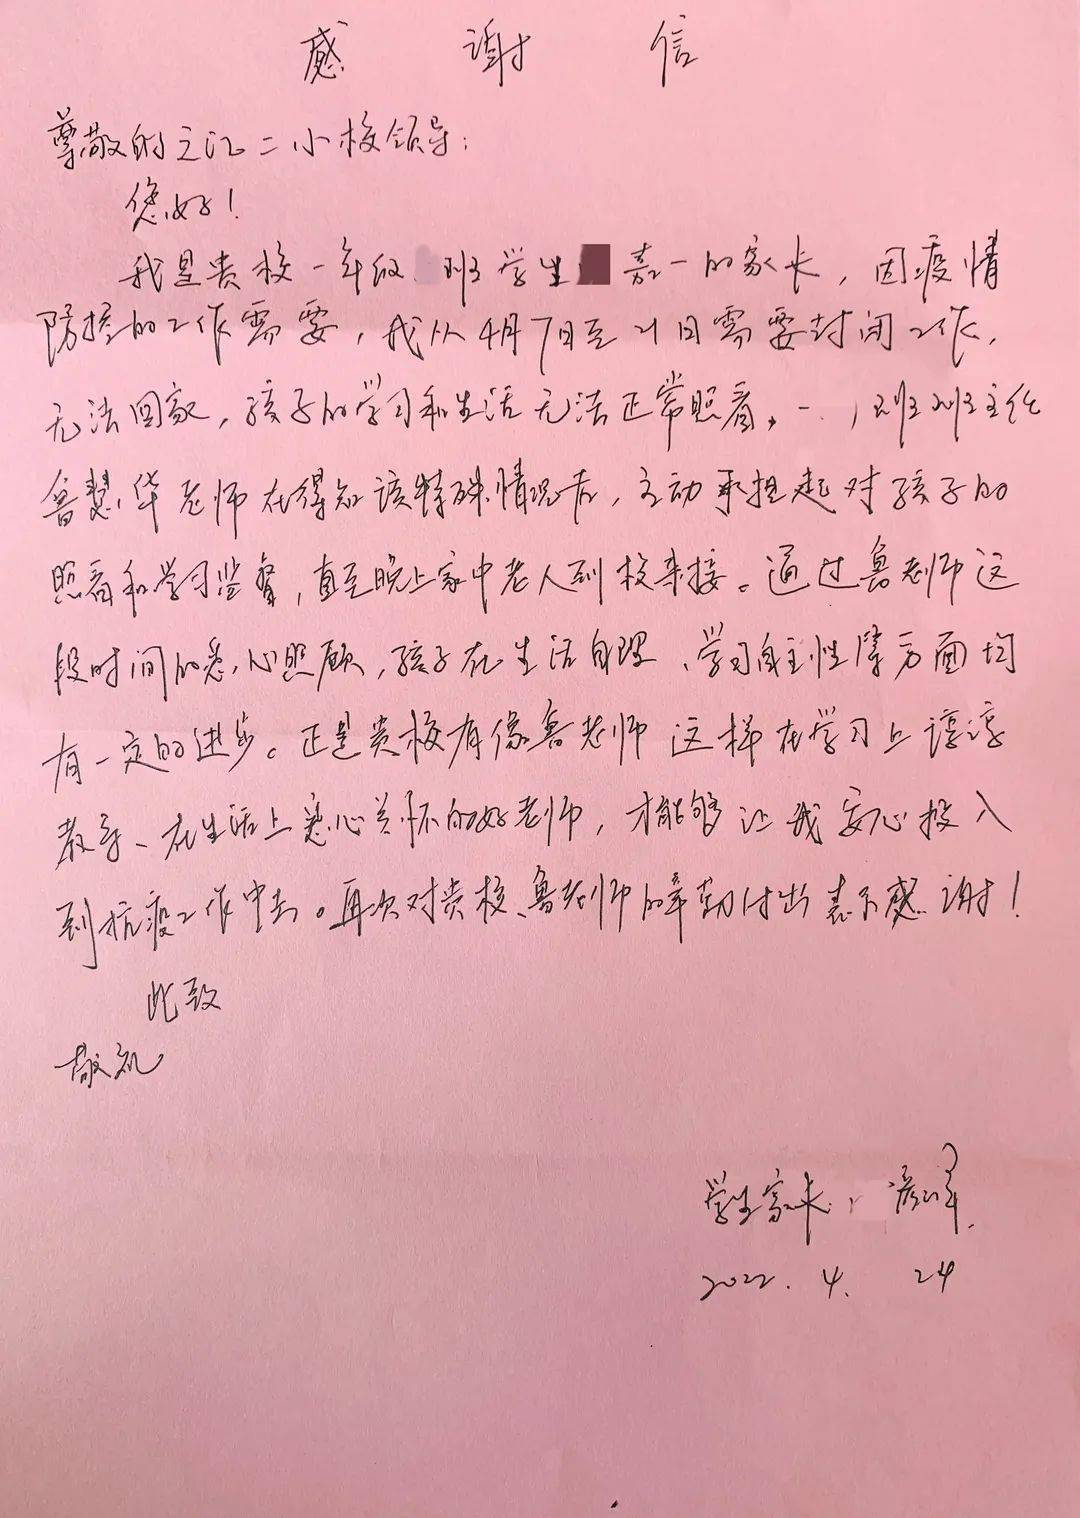 感谢信
尊敬的之江二小校领导：
您好！
我是贵校一年级 班学生 嘉一的家长，因疫情
防控的工作需要，我从4月7日至21日需要封闭工作，
无法回家，孩子的学习和生活无法正常照看。一 班班主任
鲁慧华老师在得知该特殊情况后，主动承担起对孩子的
照看和学习监督，直至晚上家中老人到校来接。通过鲁老师这
段时间的悉心照顾，孩子在生活自理、学习自主性等方面均
有一定的进步。正是贵校有像鲁老师这样在学习上谆谆
教导、在生活上悉心关怀的好老师，才能够让我安心投入
到抗疫工作中去。再次对贵校、鲁老师的辛勤付出表示感谢！
此致
敬礼
学生家长：
2022.4.24